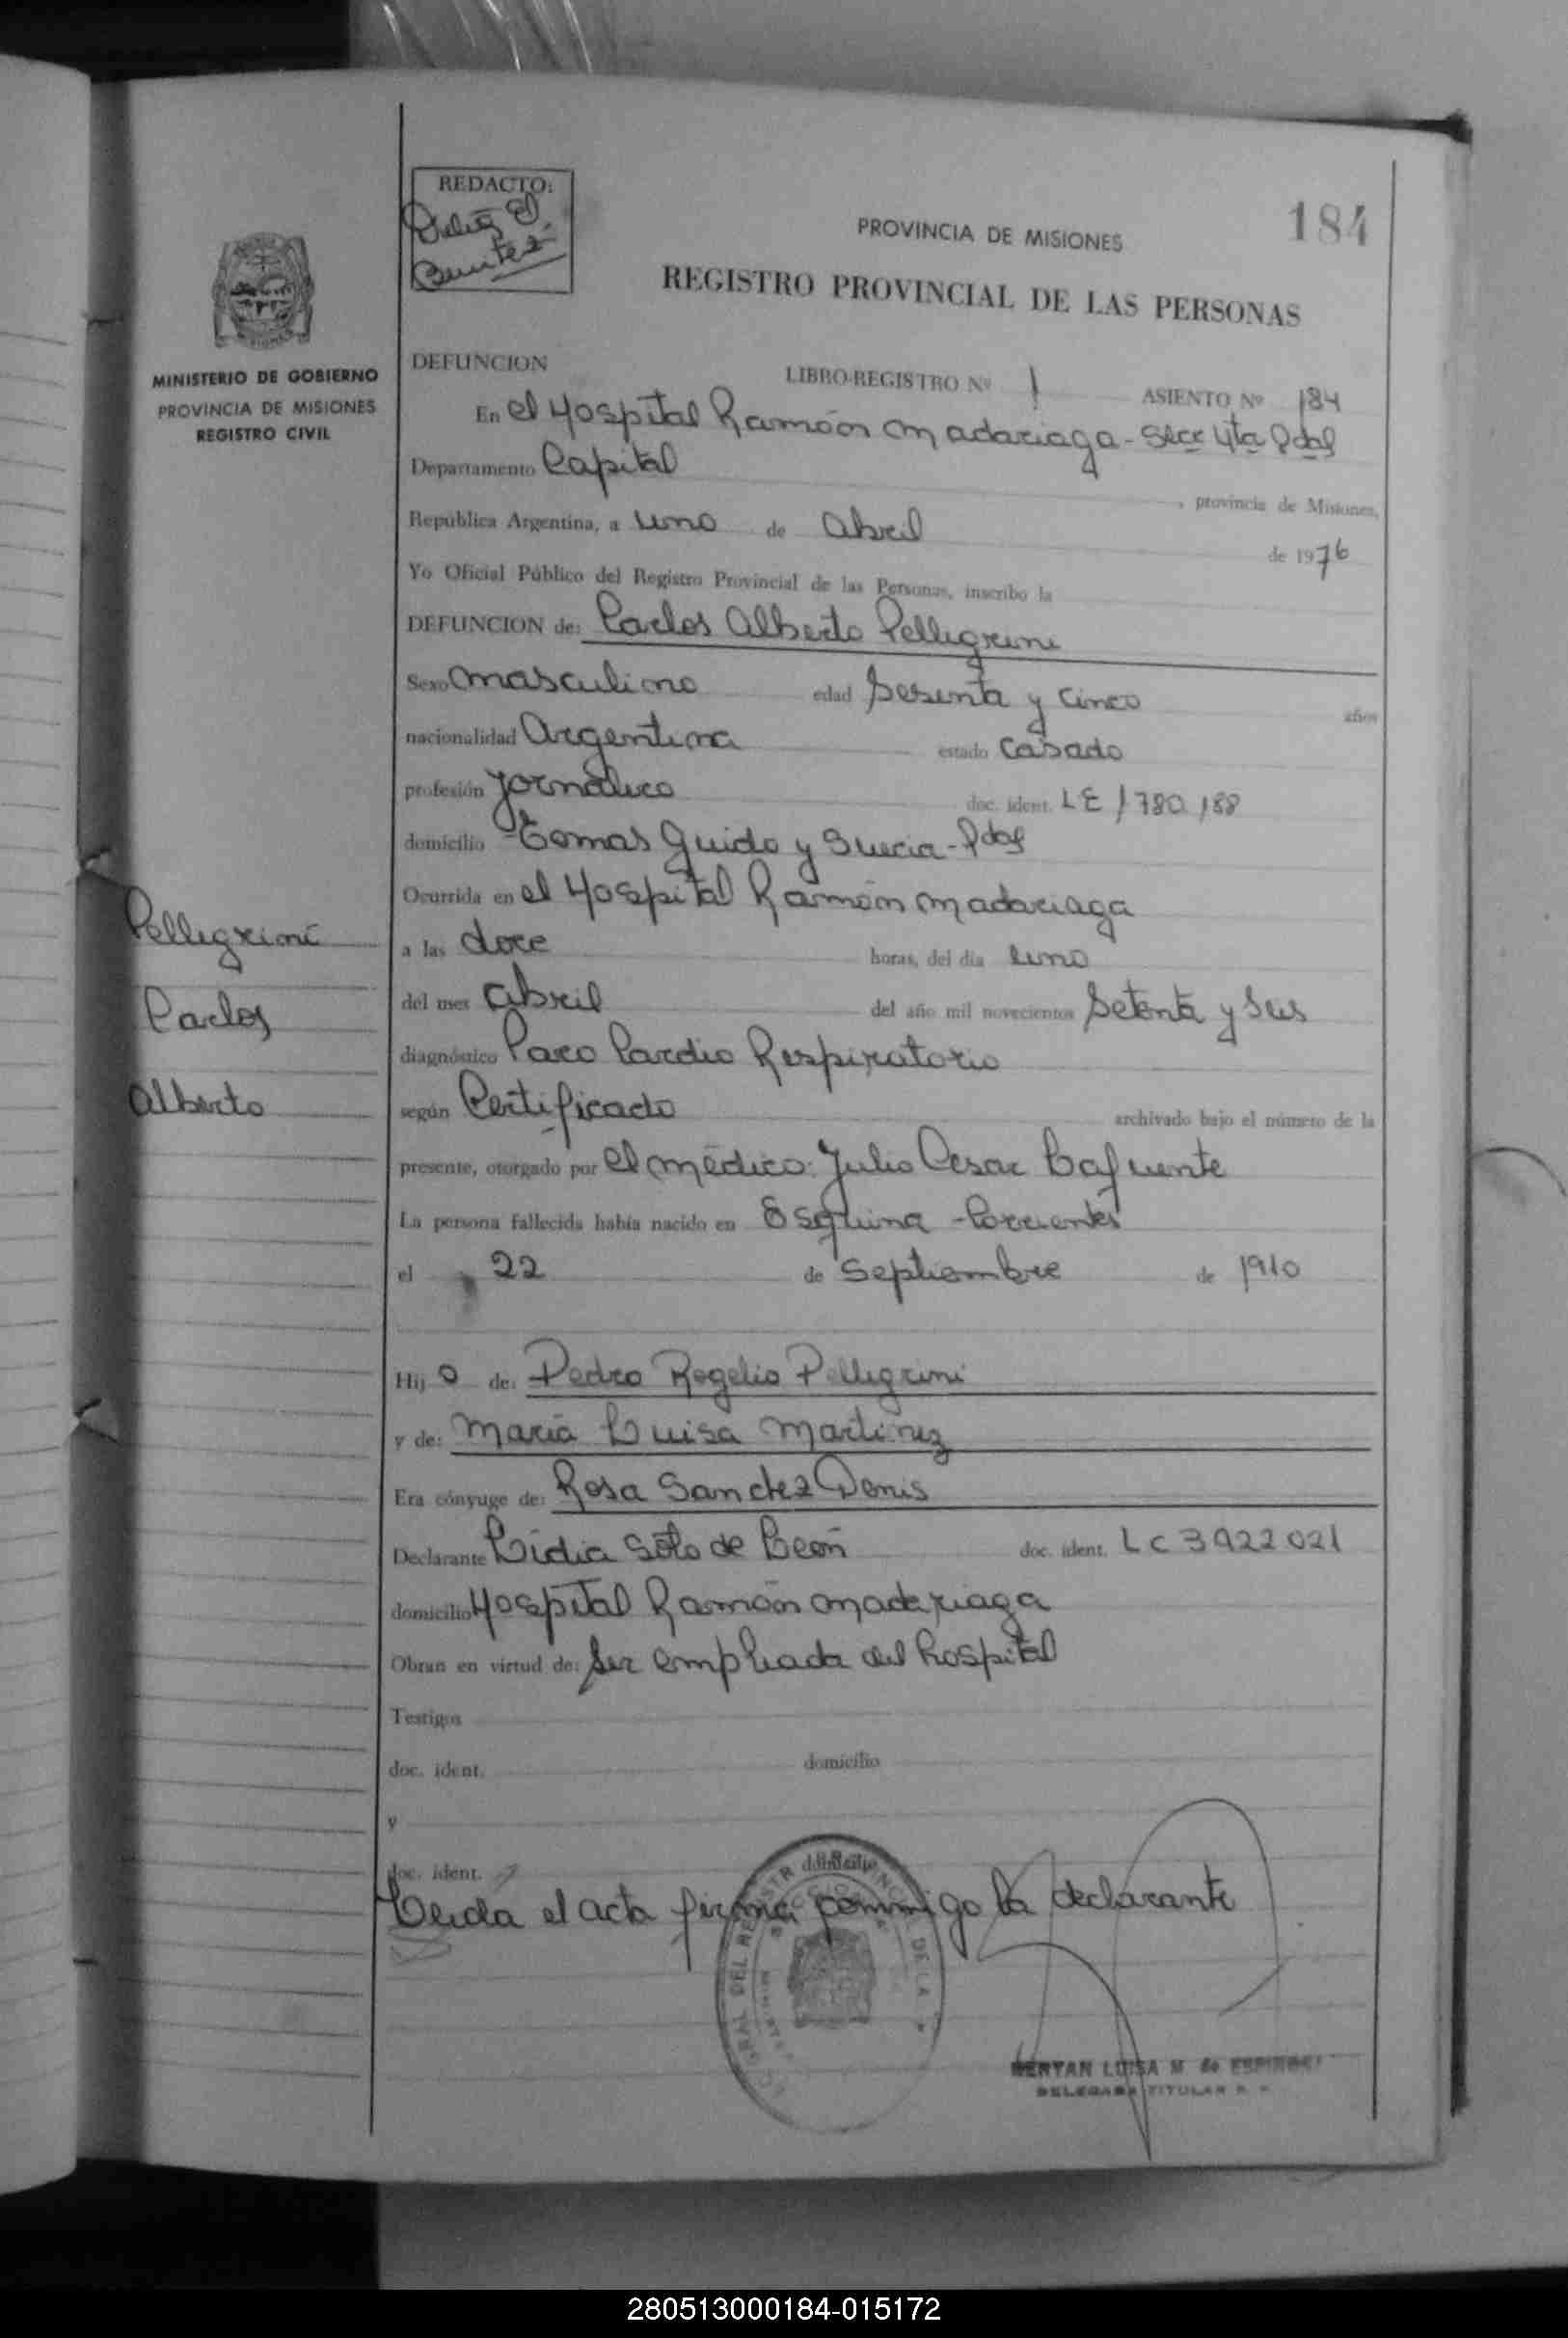 REDACTO:
Benitez
PROVINCIA DE MISIONES
184
REGISTRO PROVINCIAL DE LAS PERSONAS
MINISTERIO DE GOBIERNO
PROVINCIA DE MISIONES
REGISTRO CIVIL
DEFUNCION LIBRO-REGISTRO Nº 1 ASIENTO Nº 184
En el Hospital Ramón Madariaga - Secc 4ta Pdas
Departamento Capital , provincia de Misiones,
República Argentina, a uno de Abril de 1976
Yo Oficial Público del Registro Provincial de las Personas, inscribo la
DEFUNCION de: Carlos Alberto Pellegrini
Sexo Masculino edad Sesenta y Cinco años
nacionalidad Argentina estado Casado
profesión Jornalero doc. ident. LE 1780188
domicilio Tomas Guido y Suecia - Pdas
Ocurrida en el Hospital Ramón Madariaga
a las doce horas, del día uno
del mes Abril del año mil novecientos Setenta y Seis
diagnóstico Paro Cardio Respiratorio
según Certificado archivado bajo el número de la
presente, otorgado por el médico: Julio Cesar Lafuente
La persona fallecida había nacido en Esquina - Corrientes
el 22 de Septiembre de 1910
Hij o de: Pedro Rogelio Pellegrini
y de: Maria Luisa Martinez
Era cónyuge de: Rosa Sanchez Denis
Declarante Lidia Soto de León doc. ident. LC 3922021
domicilio Hospital Ramón Madariaga
Obran en virtud de: Ser empleada del hospital
Testigos
doc. ident. domicilio
y
doc. ident. domicilio
Leida el acta firma conmigo la declarante
Pellegrini
Carlos
Alberto
BERTAN LUISA M. de
DELEGADA TITULAR
280513000184-015172